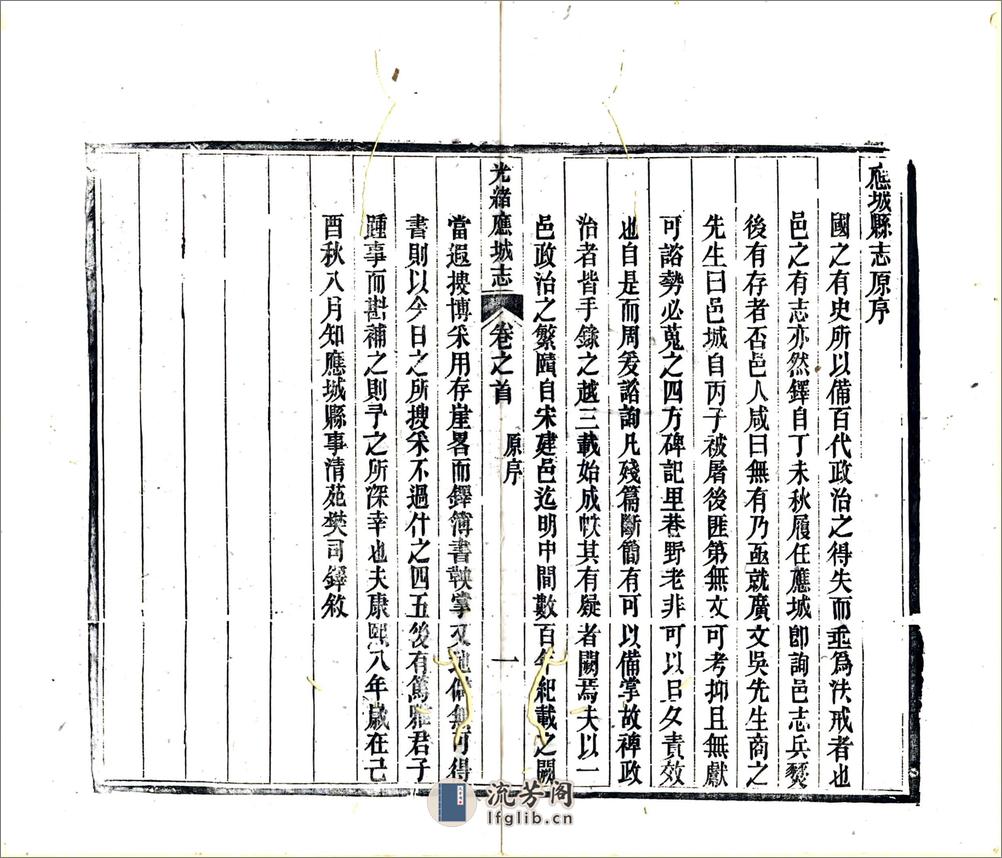 應城縣志原序
國之有史所以備百代政治之得失而垂爲法戒者也
邑之有志亦然鐸自丁未秋履任應城卽詢邑志兵燹
後有存者否邑人咸曰無有乃亟就廣文吳先生商之
先生曰邑城自丙子被屠後匪第無文可考抑且無獻
可諮勢必蒐之四方碑記里巷野老非可以日夕責效
也自是而周爰諮詢凡殘篇斷簡有可以備掌故裨政
治者皆手錄之越三載始成帙其有疑者闕焉夫以一
邑政治之繁賾自宋建邑迄明中間數百年紀載之闕
光緒應城志
卷之首
原序
一
當遐搜博采用存崖畧而鐸簿書鞅掌又
無可得
書則以今日之所搜采不過什之四五後有篤雅君子
踵事而斟補之則予之所深幸也夫康熙八年歲在己
酉秋八月知應城縣事清苑樊司鐸敘
流芳阁
lfglib.cn